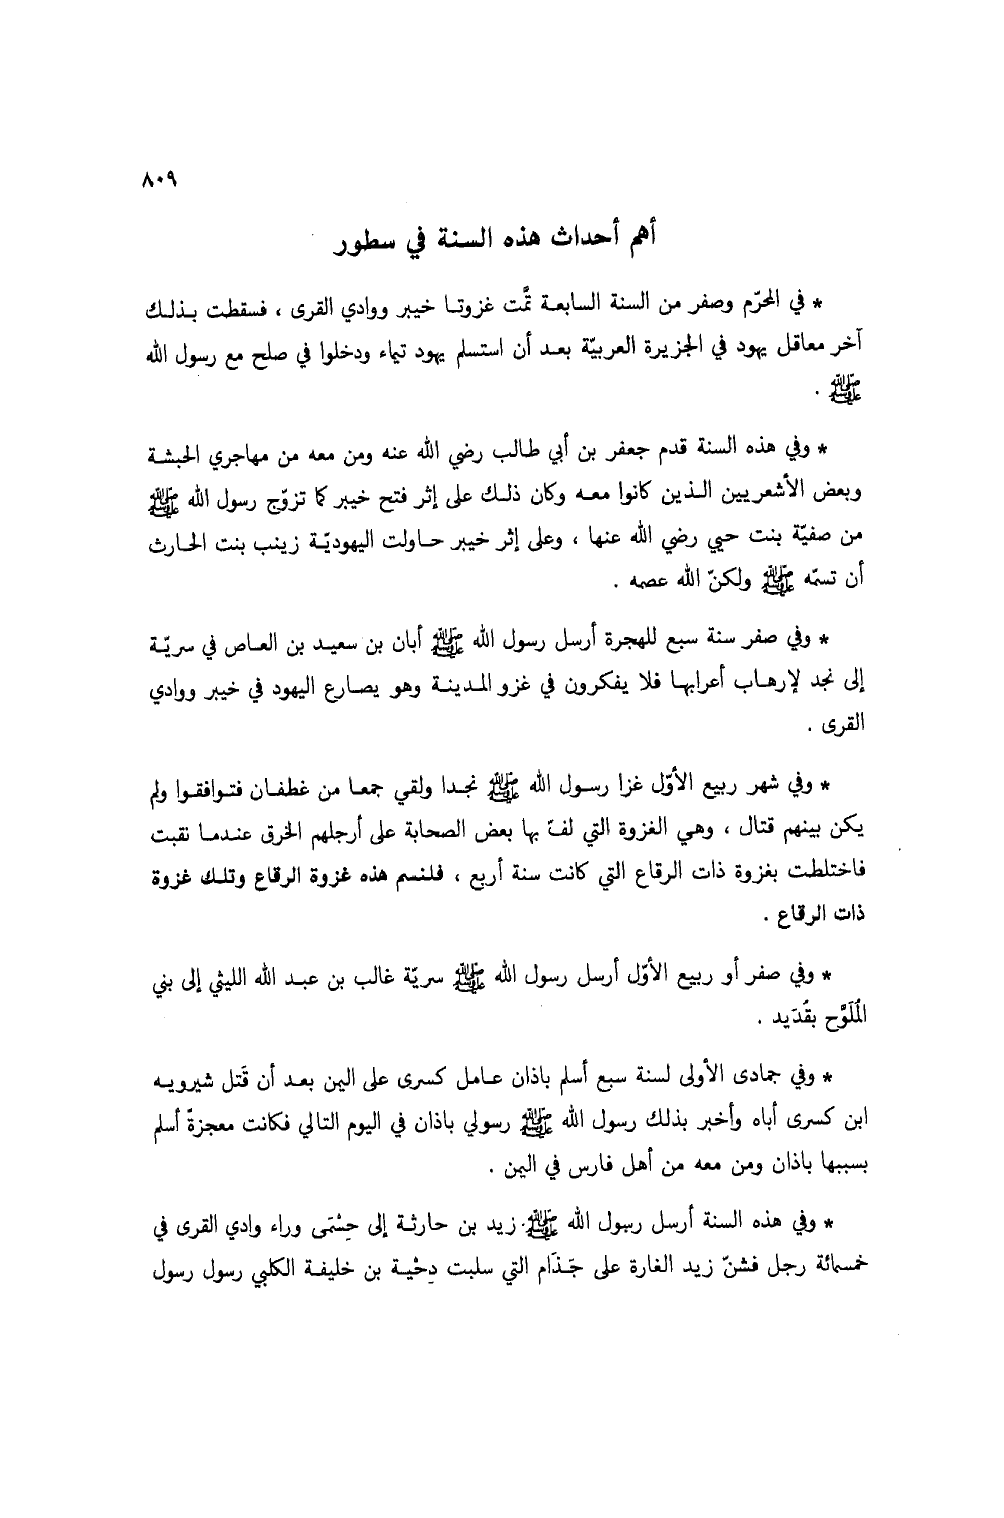 ٨٠٩
أهم أحداث هذه السنة في سطور
* في المحرّم وصفر من السنة السابعة تمَّت غزوتا خيبر ووادي القرى ، فسقطت بذلك
آخر معاقل يهود في الجزيرة العربيّة بعد أن استسلم يهود تيماء ودخلوا في صلح مع رسول الله
ﷺ .
* وفي هذه السنة قدم جعفر بن أبي طالب رضي الله عنه ومن معه من مهاجري الحبشة
وبعض الأشعريين الذين كانوا معه وكان ذلك على إثر فتح خيبر كما تزوّج رسول الله ﷺ
من صفيّة بنت حيي رضي الله عنها ، وعلى إثر خيبر حاولت اليهوديّة زينب بنت الحارث
أن تسمّه ﷺ ولكنّ الله عصمه .
* وفي صفر سنة سبع للهجرة أرسل رسول الله ﷺ أبان بن سعيد بن العاص في سريّة
إلى نجد لإرهاب أعرابها فلا يفكرون في غزو المدينة وهو يصارع اليهود في خيبر ووادي
القرى .
* وفي شهر ربيع الأوّل غزا رسول الله ﷺ نجدا ولقي جمعا من غطفان فتوافقوا ولم
يكن بينهم قتال ، وهي الغزوة التي لفّ بها بعض الصحابة على أرجلهم الخرق عندما نقبت
فاختلطت بغزوة ذات الرقاع التي كانت سنة أربع ، فلنسم هذه غزوة الرقاع وتلك غزوة
ذات الرقاع .
* وفي صفر أو ربيع الأوّل أرسل رسول الله ﷺ سريّة غالب بن عبد الله الليثي إلى بني
المُلَوَّح بقُدَيد .
* وفي جمادى الأولى لسنة سبع أسلم باذان عامل كسرى على اليمن بعد أن قَتل شيرويه
ابن كسرى أباه وأخبر بذلك رسول الله ﷺ رسولي باذان في اليوم التالي فكانت معجزةً أسلم
بسببها باذان ومن معه من أهل فارس في اليمن .
* وفي هذه السنة أرسل رسول الله ﷺ زيد بن حارثة إلى حِسْمَى وراء وادي القرى في
خمسمائة رجل فشنّ زيد الغارة على جَذَام التي سلبت دِحْية بن خليفة الكلبي رسول رسول